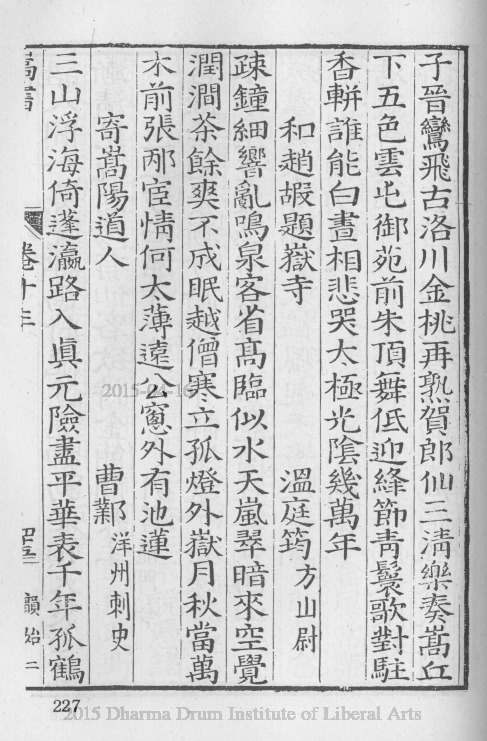 子晉鸞飛古洛川金桃再熟賀郎仙三淸樂奏嵩丘
下五色雲屯御苑前朱頂舞低迎絳節靑鬟歌對駐
香輧誰能白晝相悲哭太極光陰幾萬年
和趙嘏題嶽寺 溫庭筠 方山尉
疎鐘細響亂鳴泉客省高臨似水天嵐翠暗來空覺
潤澗茶餘爽不成眠越僧寒立孤燈外嶽月秋當萬
木前張邴宦情何太薄遠公窻外有池蓮
寄嵩陽道人 曹鄴 洋州刺史
三山浮海倚蓬瀛路入眞元險盡平華表千年孤鶴
嵩書 卷十 韻始二
227
2015 Dharma Drum Institute of Liberal Arts